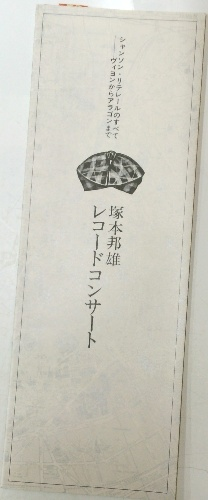 シャンソン・リテレールのすべて
──ヴィヨンからアラゴンまで
塚本邦雄
レコードコンサート